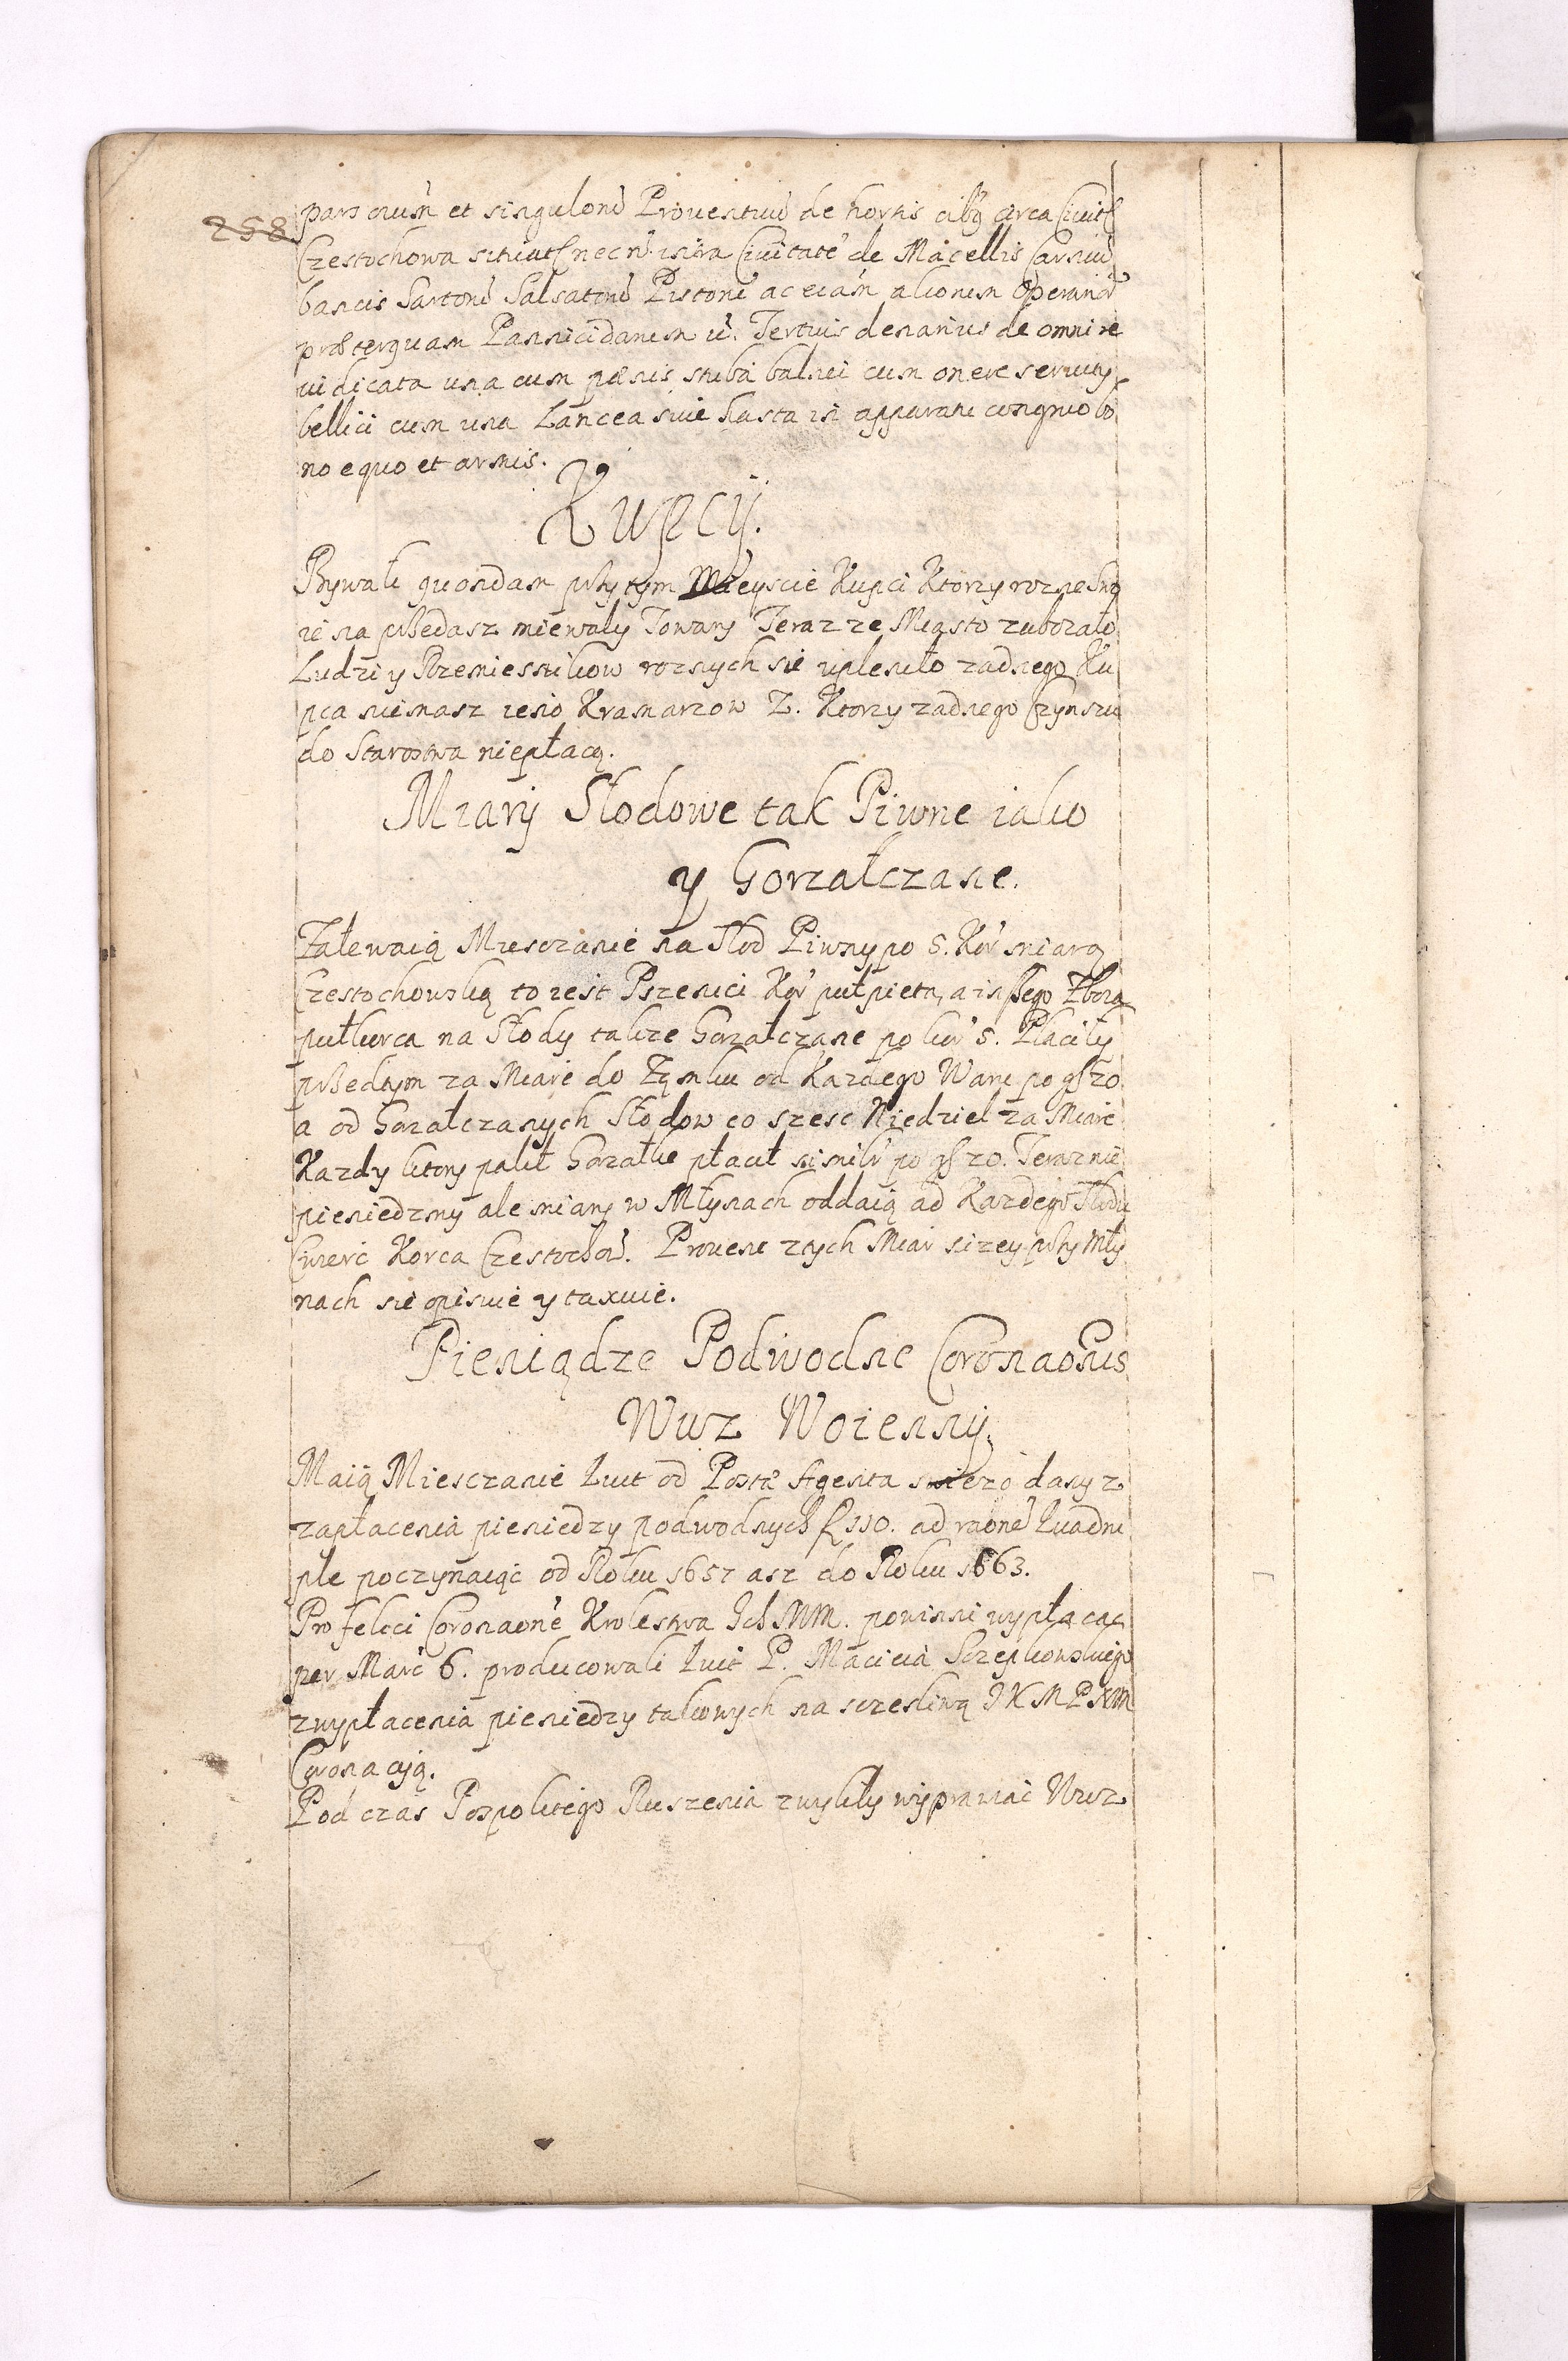 258
pars omniũ et singuloru Proventuũ de hortis cibq circa Civit
Czestochowa situat nec nõ intra Civitatẽ de Macellis Carniũ
bancis Sartorũ Salsatorũ Pistorũ ac etiam alionum Operarior
præterquam Pannicidarum u. Tertius denarius de omni re
iudicata una cum pænis stuba balnei cum onere servity
bellici cum una Lancea siue hasta in apparatu congruo bo
no equo et armis.
Kupcÿ.
Bywali quondam przy tym Mieyscie Kupci Ktorzy rozne Swo
ie na przedasz miewaly Towary Teraz ze Miasto zubozało
Ludzi y Rzemiesnikow roznych sie uplenito zadnego Ku
pca niemasz ieno Kramarzow 2. Ktorzy zadnego Czynszu
do Starostwa niepłacą.
Miarÿ Słodowe tak Piwne iako
y Gorzałczane.
Zalewaią Miesczanie na Słod Piwny po 5. Kor miarą
Czestochowską to iest Pszenici Kor pułpięta, a inszego Zboza
pułkorca na Słody takze Gorzałczane po kor 5. Płacily
przedtym za Miare do Zamku od Kazdego Waru po gr 20
a od Gorzałczanych Słodow co szesc Niedziel za Miare
Kazdy ktory palił Gorzałke płacił po gr 20. Teraz nie
pieniedzmy ale miary w Młynach oddaią od Kazdego Słodu
Cwierc Korca Czestochow. Prouent z tych Miar nizey przy Mły
nach sie opisuie y taxuie.
Pieniądze Podwodne Coronaõnis
Wuz Woiennÿ.
Maią Miesczanie kwit od Poczt Agenta swiezo dany z
zapłacenia pieniedzy podwodnych f 110. ad raõnẽ kwadru
ple poczynaiąc od Roku 1657 asz do Roku 1663.
Pro felici Coronaõne Krolestwa Ich MM. powinni wypłacac
per Marc 6. producowali kwit P. Macieia Szczepkowskiego
z wypłacenia pieniedzy takowych na szczesliwą JKMPNM
Coronacyą.
Pod czas Pospolitego Ruszenia zwykly wyprawiac Wuz